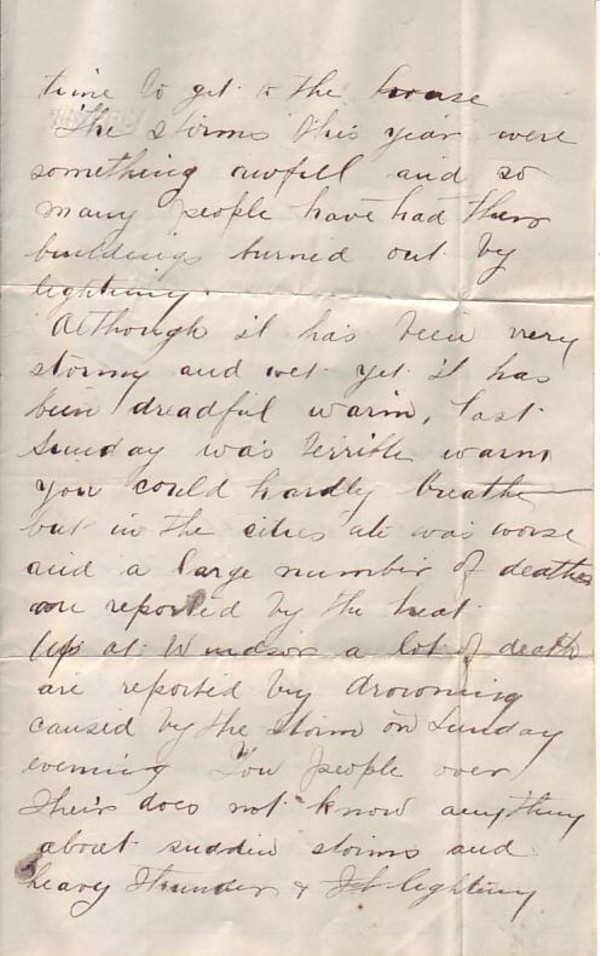 time to get to the house
The storms this year were
something awfull and so
many people have had their
buildings burned out by
lightning.
Although it has been very
stormy and wet yet it has
been dreadful warm, last
Sunday was terrible warm
you could hardly breathe
but in the cities it was worse
and a large number of deaths
are reported by the heat
Up at Windsor a lot of death
are reported by drowning
caused by the storm on Sunday
evening You people over
theirs does not know anything
about sudden storms and
heavy thunder & lighting